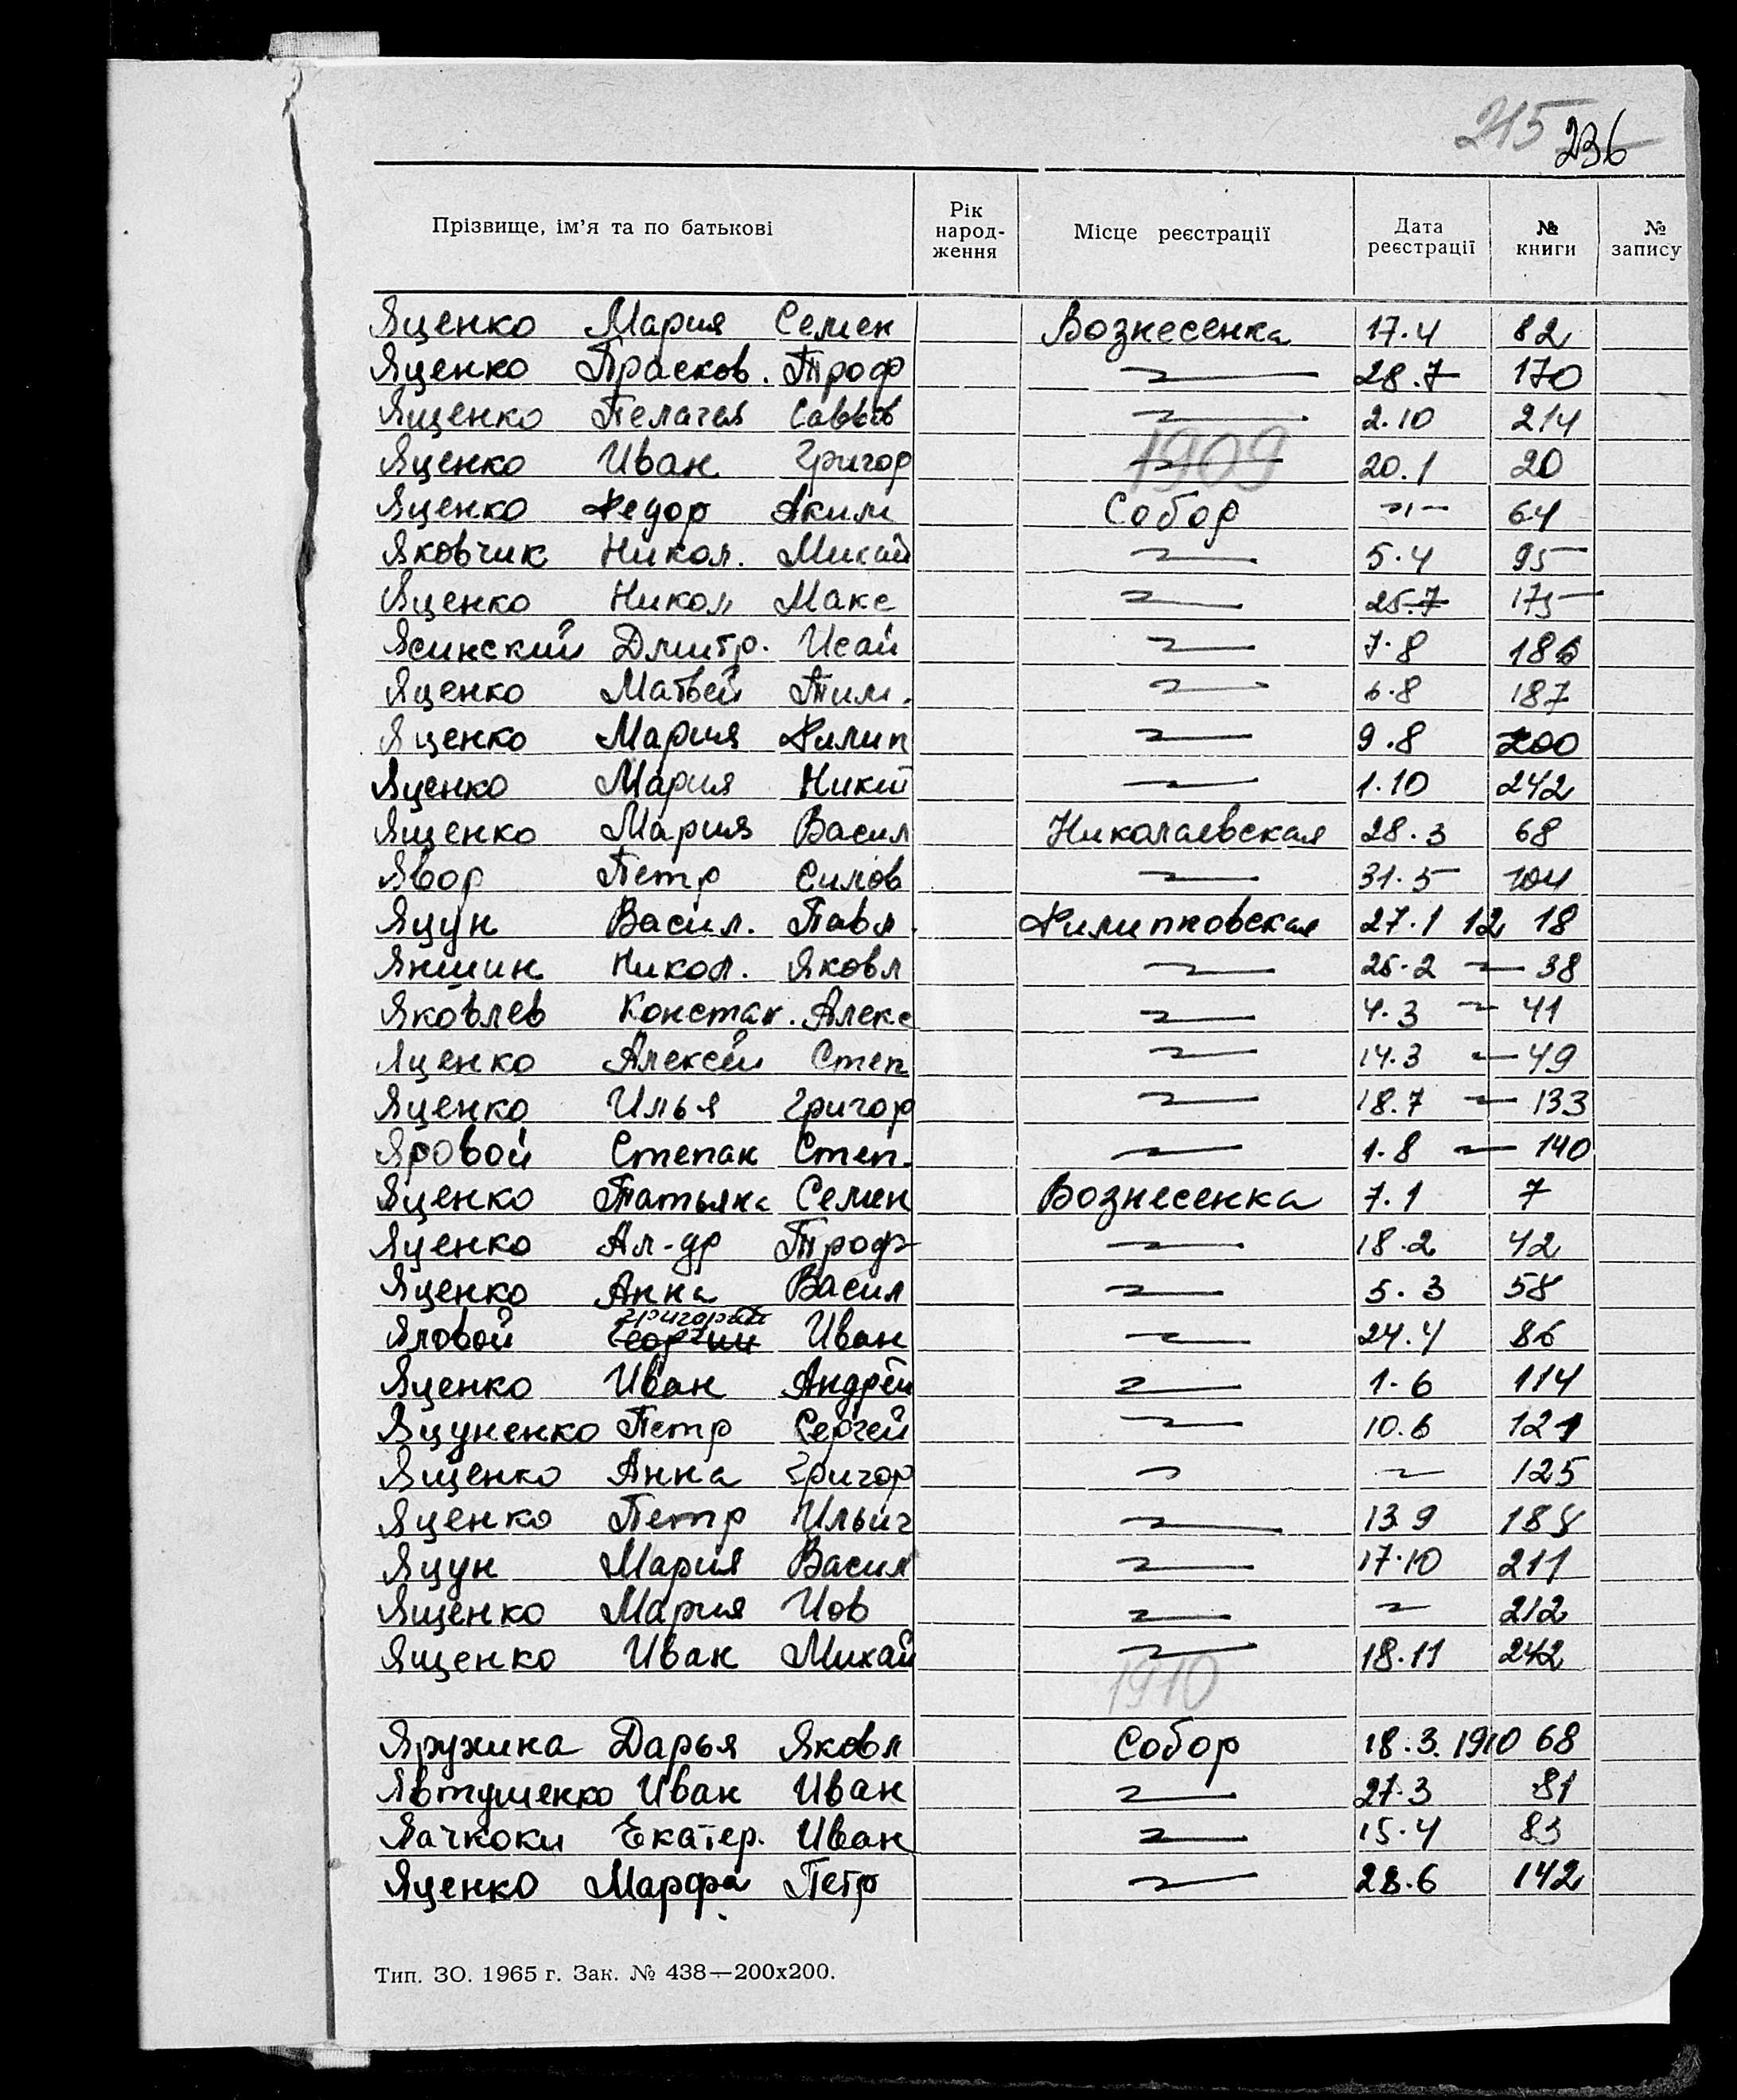 215 236
Прізвище, ім'я та по батькові Рік народ-ження Місце реєстрації Дата реєстрації № книги № запису
Яценко Мария Семен Вознесенка 17.4 82
Яценко Прасков. Троф —"— 28.7 170
Ященко Пелагея Саввов —"— 2.10 214
1909
Яценко Иван Григор —"— 20.1 20
Яценко Федор Аким Собор —"— 64
Яковчик Никол. Михай —"— 5.4 95
Яценко Никол Макс —"— 25.7 175
Ясинский Дмитр. Исай —"— 7.8 186
Яценко Матвей Тим. —"— 6.8 187
Яценко Мария Филип —"— 9.8 200
Яценко Мария Никит —"— 1.10 242
Ященко Мария Васил Николаевская 28.3 68
Явор Петр Симов —"— 31.5 104
Яцун Васил. Павл. Филипповская 27.1 12 18
Яншин Никол. Яковл —"— 25.2 —"— 38
Яковлев Констан. Алекс —"— 4.3 —"— 41
Яценко Алексей Степ —"— 14.3 —"— 49
Яценко Илья Григор —"— 18.7 —"— 133
Яровой Степан Степ. —"— 1.8 —"— 140
Яценко Татьяна Семен Вознесенка 7.1 7
Яценко Ал-др Троф —"— 18.2 42
Яценко Анна Васил —"— 5.3 58
Григорий
Яловой Георгий Иван —"— 24.4 86
Яценко Иван Андрей —"— 1.6 114
Яцуненко Петр Сергей —"— 10.6 121
Ященко Анна Григор —"— —"— 125
Яценко Петр Ильич —"— 13.9 188
Яцун Мария Васил —"— 17.10 211
Ященко Мария Иов —"— —"— 212
Ященко Иван Михай —"— 18.11 242
1910
Яружина Дарья Яковл Собор 18.3.1910 68
Явтушенко Иван Иван —"— 27.3 81
Екатер. Иван —"— 15.4 83
Яценко Марфа Петр —"— 28.6 142
Тип. ЗО. 1965 г. Зак. № 438—200х200.